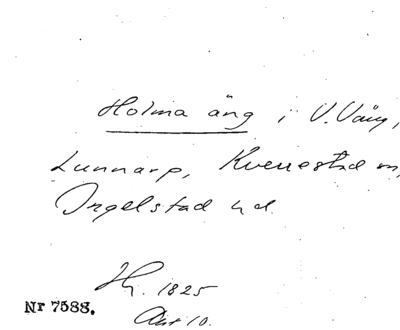 Holma äng i V. Väng,
Lunnarp, Kverrestad m,
Ingelstad hd.
Hg. 1825
Akt 10.
Nr 7588.